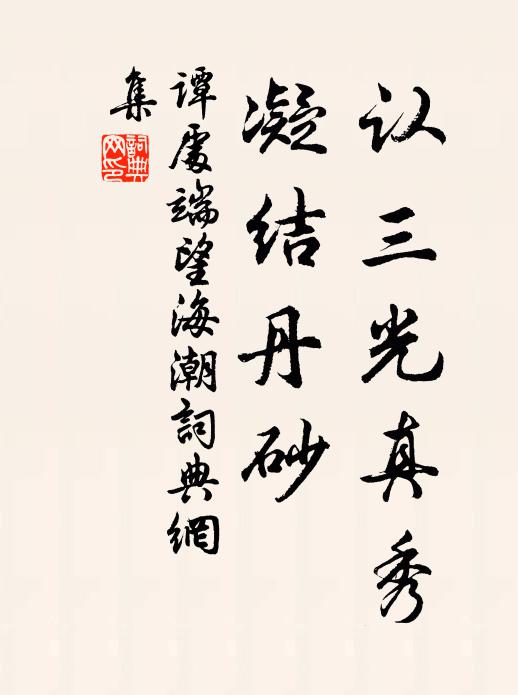 认三光真秀
凝结丹砂
谭處端望海潮詞典網
集
詞典
网印